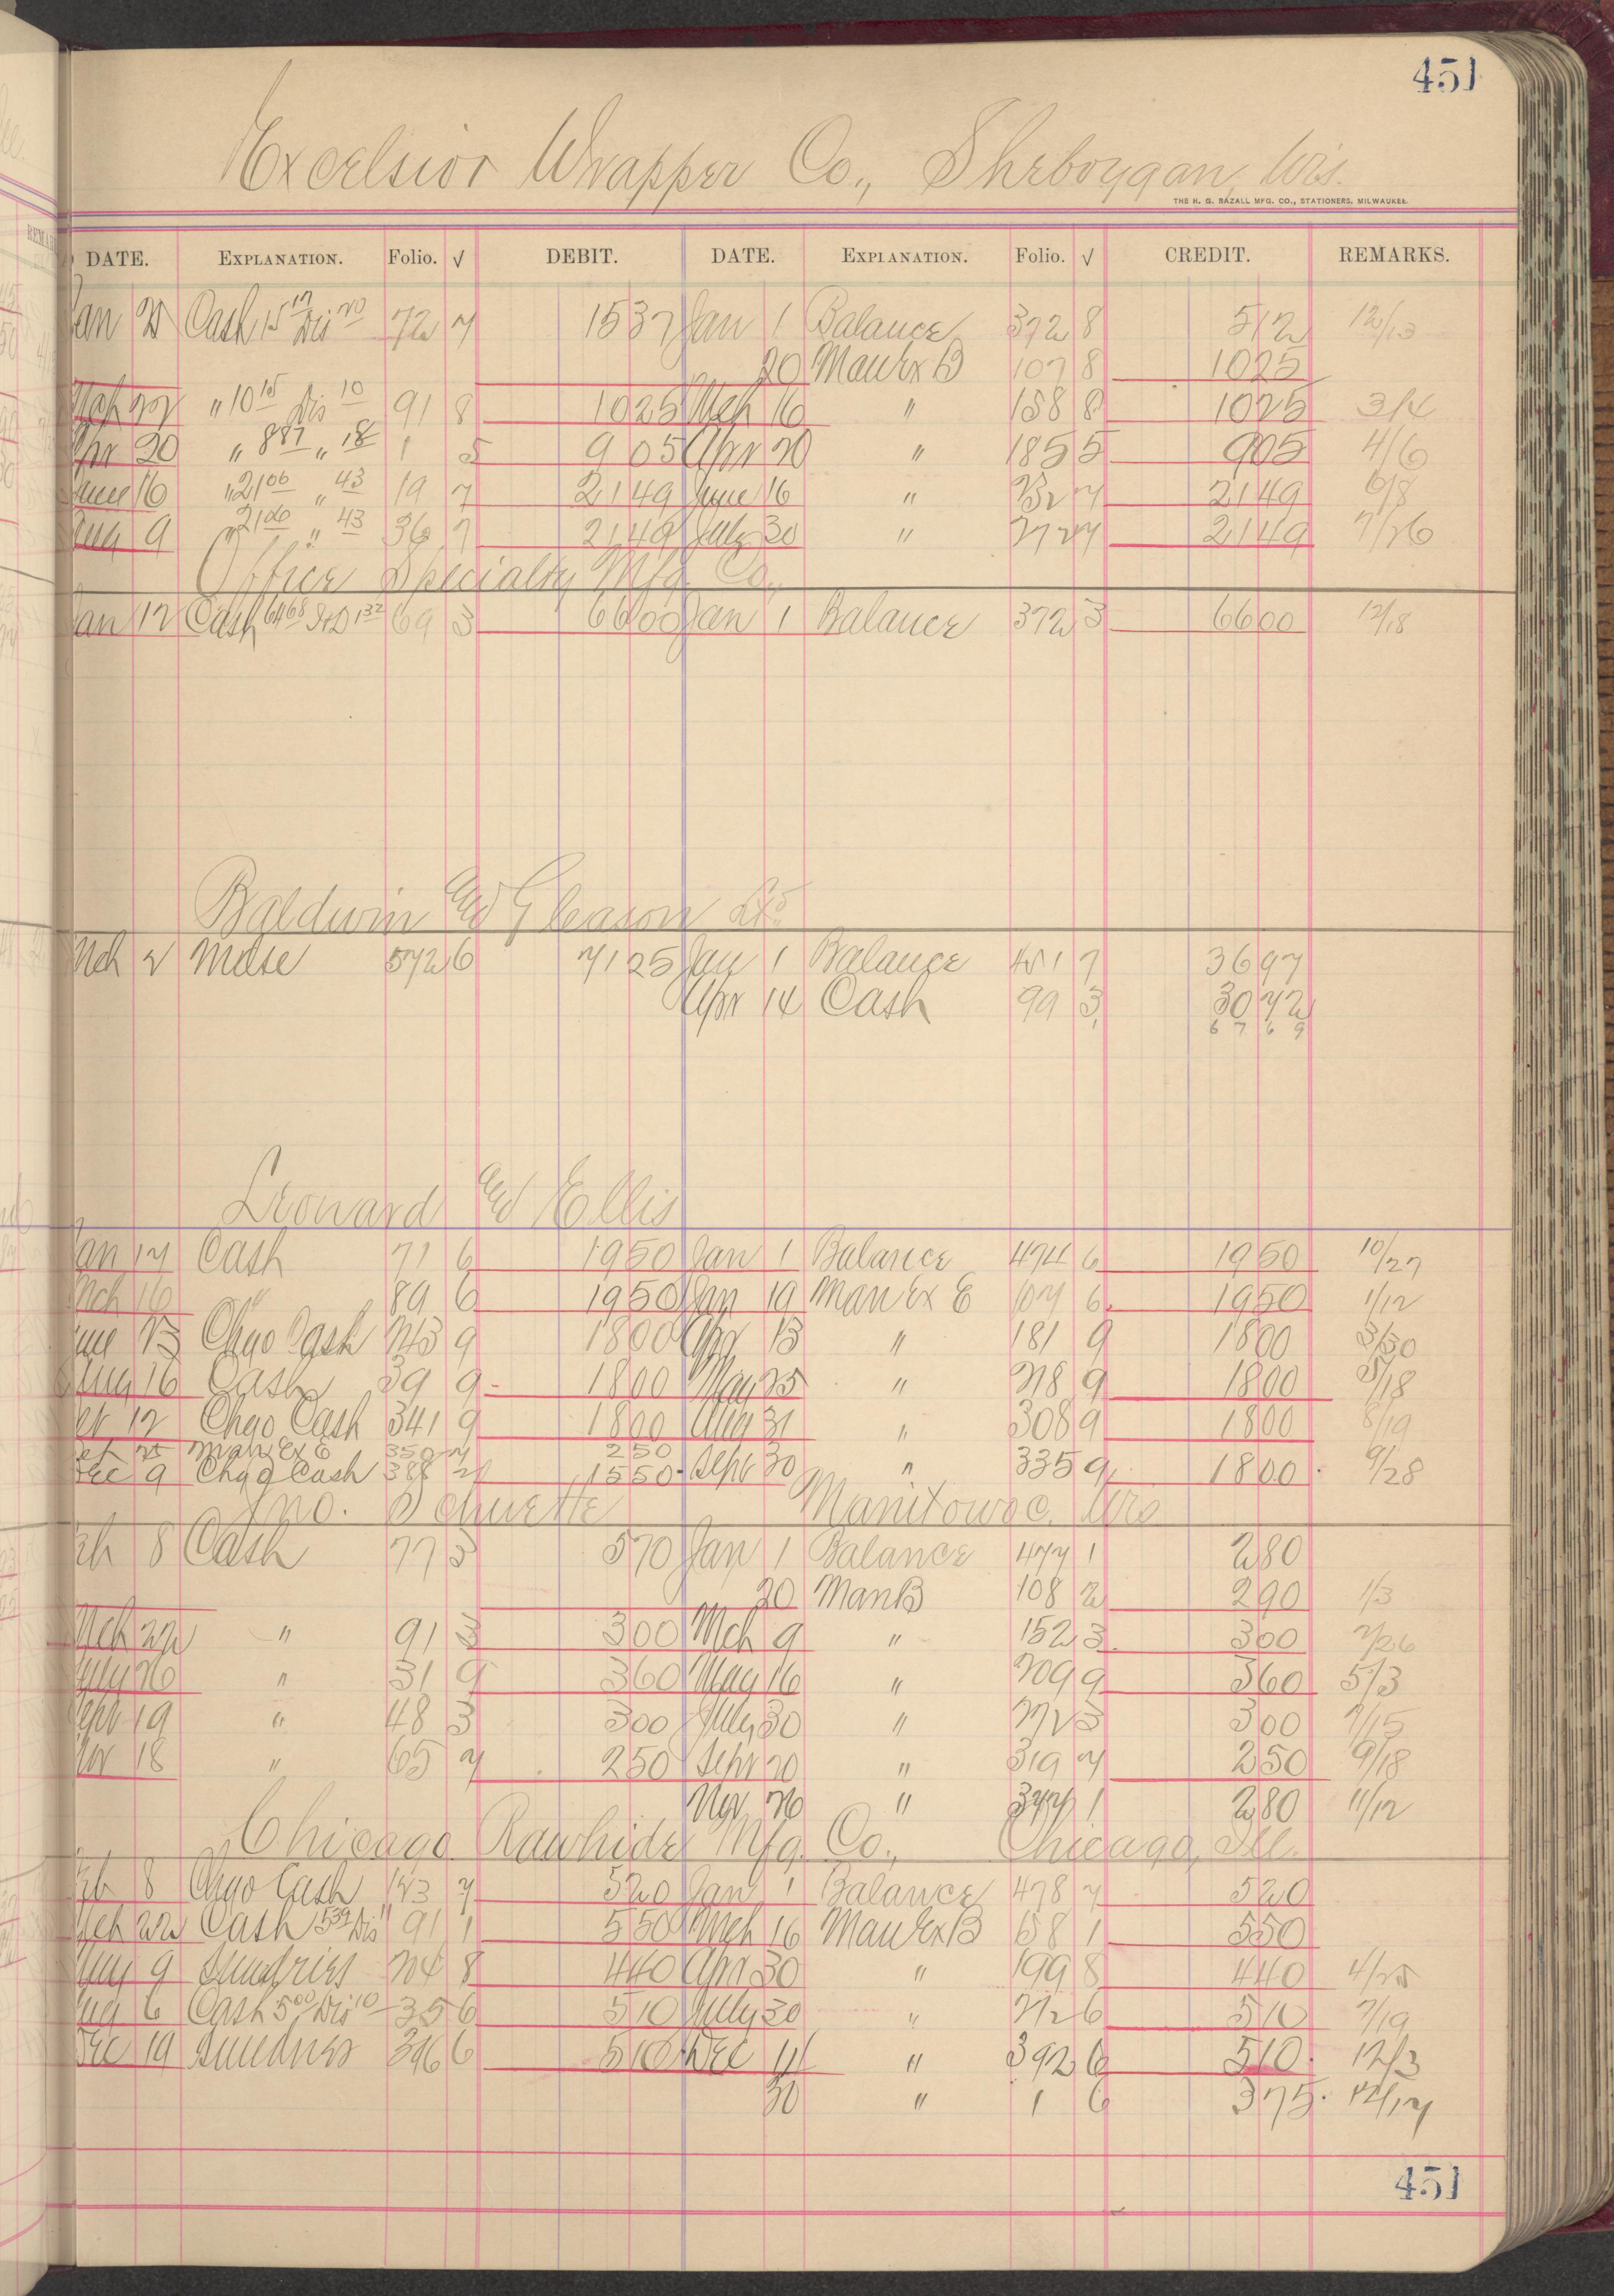 451
Excelsior Wrapper Co., Sheboygan, Wis.
THE H. G. BAZALL MFG. CO., STATIONERS, MILWAUKEE.
DATE. EXPLANATION. Folio. √ DEBIT. DATE. EXPLANATION. Folio. √ CREDIT. REMARKS.
Jan 25 Cash 15 17 Dis 20 72 7 1537 Jan 1 Balance 372 8 512 12/13
20 Man Ex B 107 8 1025
Mch 22 " 10 15 Dis 10 91 8 1025 Mch 16 " 158 8 1025 3/4
Apr 20 " 8 87 " 18 1 5 905 Apr 20 " 185 5 905 4/6
June 16 " 21 06 " 43 19 7 2149 June 16 " 7 2149 6/8
Aug 9 " 21 06 " 43 36 7 2149 July 30 " 272 7 2149 7/26
Office Specialty Mfg. Co.,
Jan 12 Cash 64 68 Dis 1 32 69 3 6600 Jan 1 Balance 372 3 6600 12/18
Baldwin and Gleason
Mch 2 Mdse 572 6 7125 Jan 1 Balance 451 7 3697
Apr 14 Cash 99 3 3072
6 7 6 9
Leonard and Ellis
Jan 17 Cash 71 6 1950 Jan 1 Balance 474 6 1950 10/27
Mch 16 " 89 6 1950 Jan 19 Man Ex E 107 6 1950 1/12
June 23 Chgo Cash 243 9 1800 Apr 13 " 181 9 1800 3/30
Aug 16 Cash 39 9 1800 May 25 " 218 9 1800 5/18
Oct 12 Chgo Cash 341 9 1800 Aug 31 " 308 9 1800 8/19
Oct 25 Man Ex E 350 7 250
Dec 9 Chgo Cash 388 2 1550 Sept 30 " 335 9 1800 9/28
Jno. Schuette Manitowoc, Wis
Feb 8 Cash 77 3 570 Jan 1 Balance 477 1 280
20 Man B 108 2 290 1/3
Mch 22 " 91 3 300 Mch 9 " 152 3 300 2/26
July 26 " 31 9 360 May 16 " 209 9 360 5/3
Sept 19 " 48 3 300 July 30 " 272 3 300 7/15
Nov 18 " 65 7 250 Sept 20 " 319 7 250 9/18
Nov 26 " 377 1 280 11/12
Chicago Rawhide Mfg. Co., Chicago, Ill.
Feb 8 Chgo Cash 123 7 520 Jan 1 Balance 478 7 520
Mch 22 Cash 5 39 Dis 11 91 1 550 Mch 16 Man Ex B 158 1 550
May 9 Sundries 204 8 440 Apr 30 " 199 8 440 4/25
Aug 6 Cash 5 00 Dis 10 35 6 510 July 30 " 272 6 510 7/19
Dec 19 Sundries 396 6 510 Dec 14 " 392 6 510 12/3
30 " 1 6 375 12/17
451